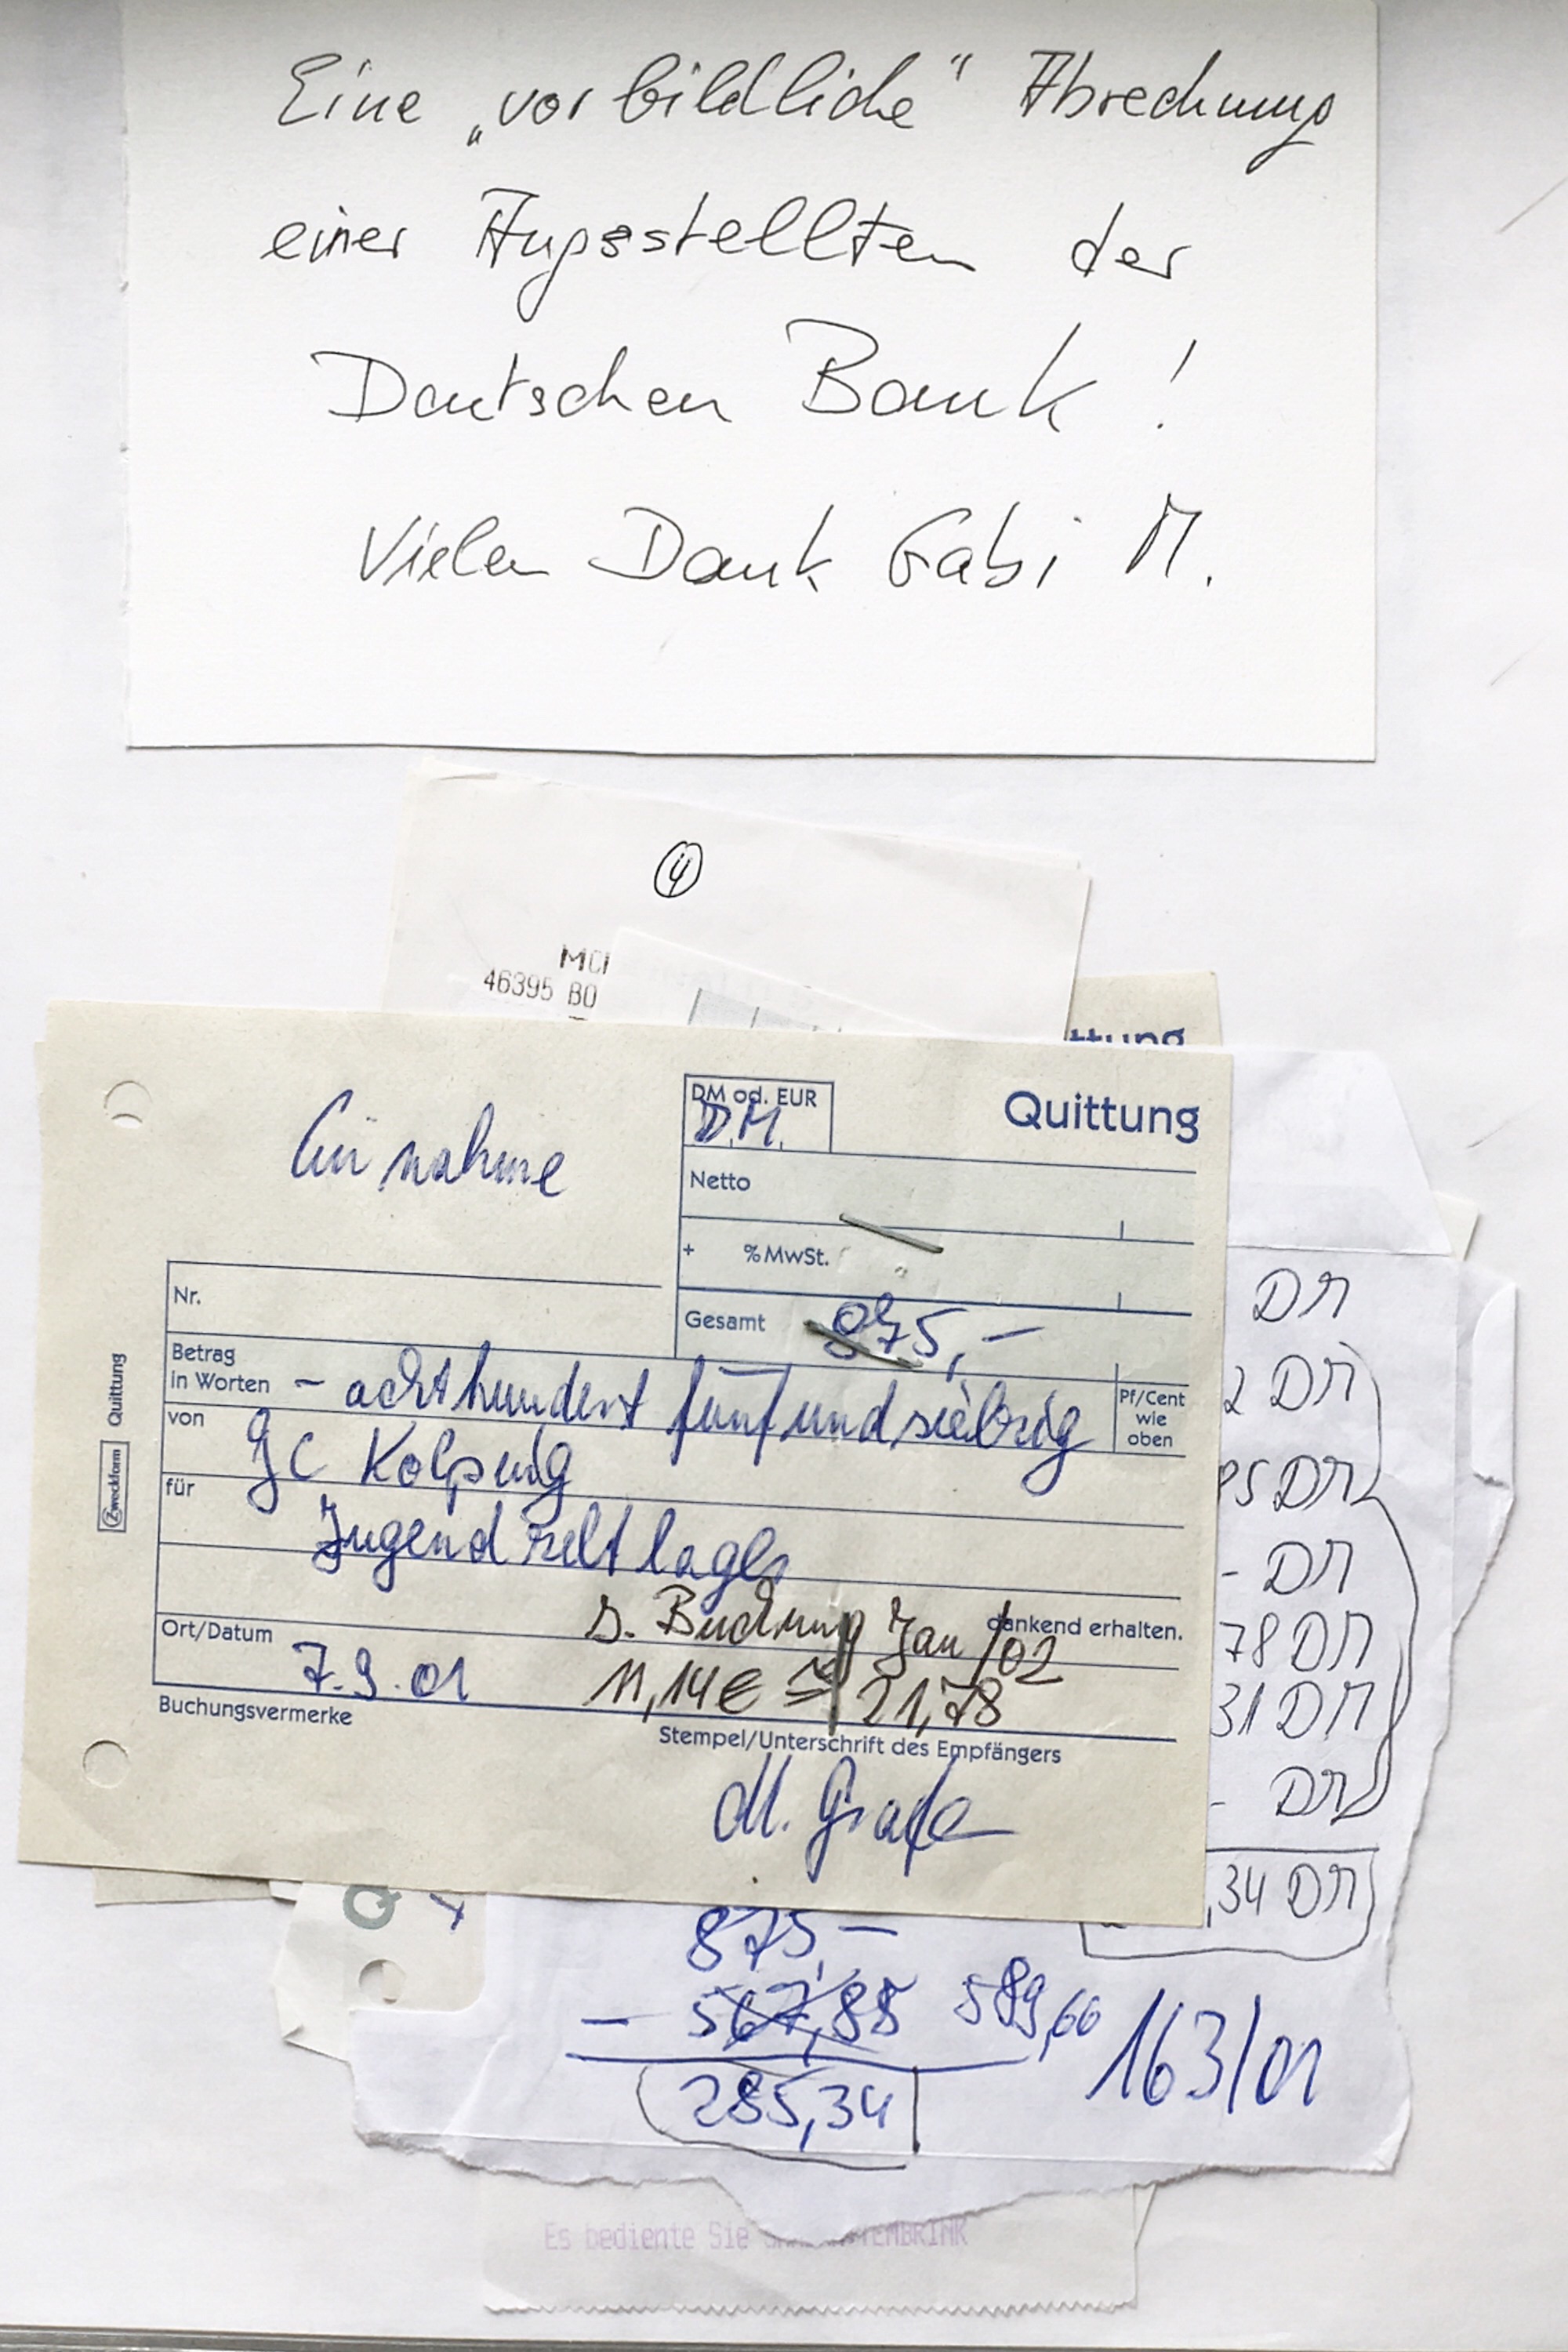 Eine „vorbildliche“ Abrechnung
einer Angestellten der
Deutschen Bank!
Vielen Dank Gabi M.
4
46395 BO
ttung
DM od. EUR
D.M.
Quittung
Einnahme
Netto
+ % MwSt.
Nr.
Gesamt 875,-
Betrag in Worten - achthundert fünfundsiebzig
Pf/Cent wie oben
von JC Kolping
für
Jugendzeltlager
s. Buchung Jan/02
dankend erhalten.
Ort/Datum 7.9.01
11,14€ ≙ 21,78
Buchungsvermerke
Stempel/Unterschrift des Empfängers
M. Grafe
Zweckform Quittung
DM
2 DM
95 DM
- DM
78 DM
31 DM
- DM
,34 DM
Q
875,-
- 567,88 589,66
285,34
163/01
Es bediente Sie